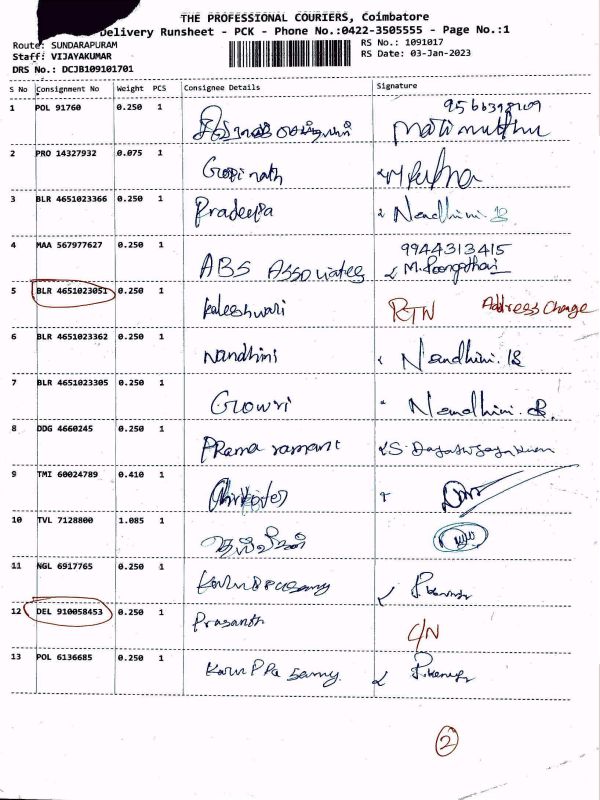 THE PROFESSIONAL COURIERS, Coimbatore
Delivery Runsheet - PCK - Phone No.:0422-3505555 - Page No.:1
Route: SUNDARAPURAM
RS No.: 1091017
Staff: VIJAYAKUMAR
RS Date: 03-Jan-2023
DRS No.: DCJB109101701
S No Consignment No Weight PCS Consignee Details Signature
1 POL 91760 0.250 1
2 PRO 14327932 0.075 1 Gopinath
3 BLR 4651023366 0.250 1 Pradeepa Nandhini. B
9944313415
4 MAA 567977627 0.250 1 ABS Associates M.Poongothai
5 BLR 4651023051 0.250 1 Kaleshwari RTN Address Change
6 BLR 4651023362 0.250 1 Nandhini Nandhini. B
7 BLR 4651023305 0.250 1 Gowri Nandhini. B.
8 DDG 4660245 0.250 1
9 TMI 60024789 0.410 1
10 TVL 7128800 1.085 1
11 NGL 6917765 0.250 1
12 DEL 910058453 0.250 1 Prasanth C/N
13 POL 6136685 0.250 1 Karuppa samy
2